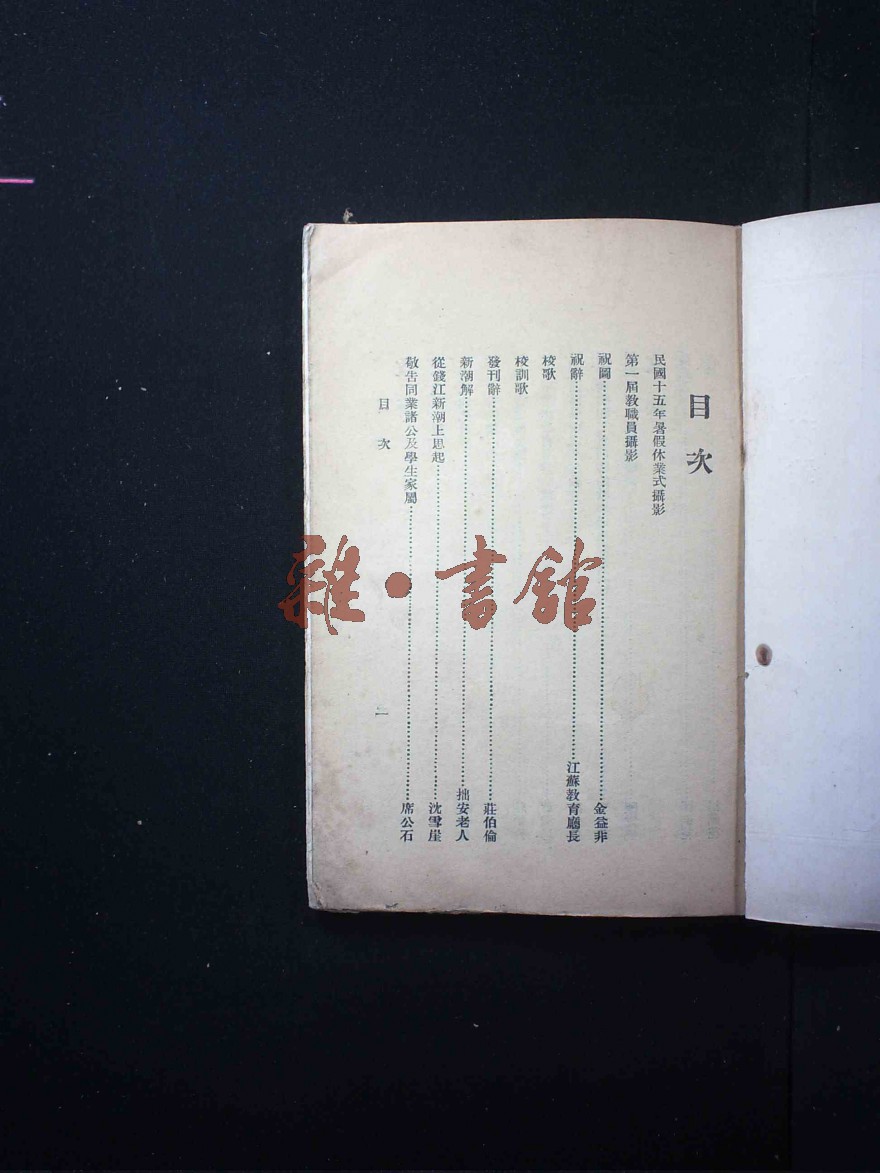 目次
民國十五年暑假休業式攝影
第一屆教職員攝影
祝圖……金益非
祝辭……江蘇教育廳長
校歌
校訓歌
發刊辭……莊伯倫
新潮解……拙安老人
從錢江新潮上思起……沈雪崖
敬告同業諸公及學生家屬……席公石
目次
二
雜·書館